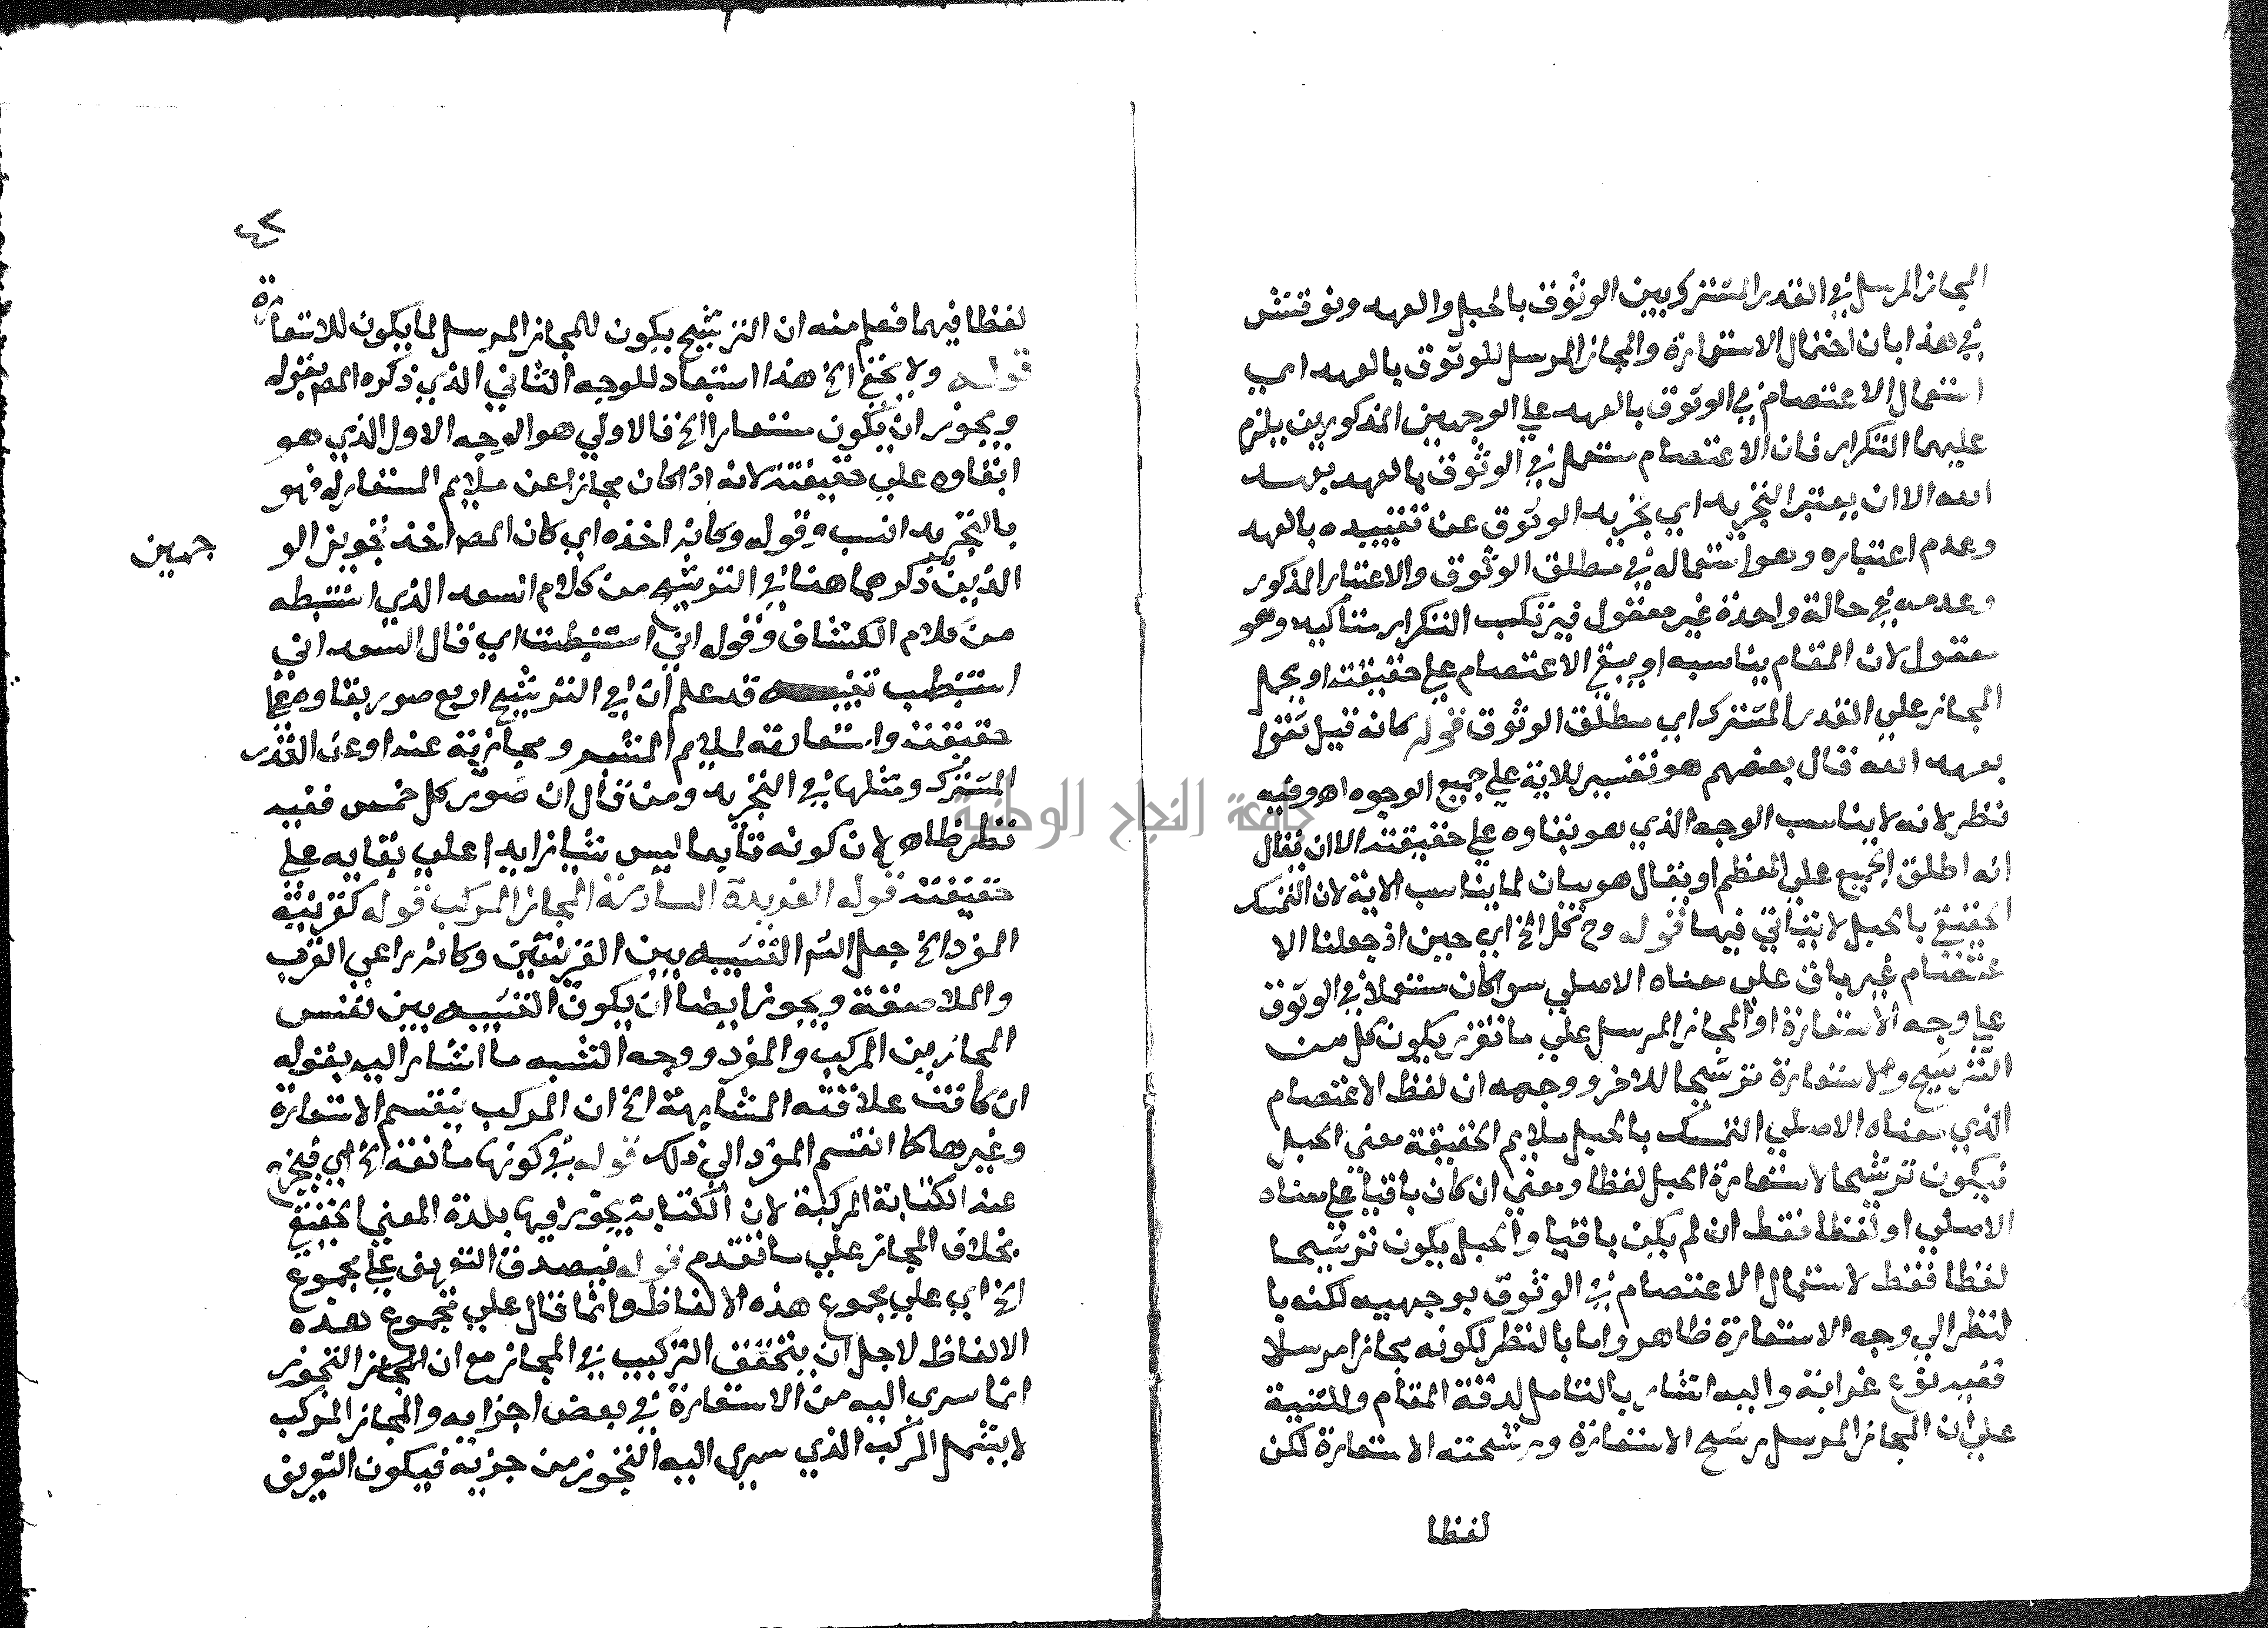 المجاز المرسل في القدر المشترك بين الوثوق بالحبل والعهد ونوقش
في هذا بان احتمال الاستعارة والمجاز المرسل للوثوق بالعهد اي
استعمال الاعتصام في الوثوق بالعهد علي الوجهين المذكورين يلزم
عليهما التكرار فان الاعتصام مستعمل في الوثوق بالعهد بعهد
الله الا ان يعتبر التجريد اي تجريد الوثوق عن تقييده بالعهد
وعدم اعتباره وهو استعماله في مطلق الوثوق والاعتبار المذكور
وعدمه في حالة واحدة غير معقول فيرتكب التكرار متاكيد وهو
معقول لان المقام يناسبه او يبقي الاعتصام علي حقيقته او يحمل
المجاز علي القدر المشترك اي مطلق الوثوق قوله كانه قيل ثقوا
بعهد الله قال بعضهم هو تفسير للاية علي جميع الوجوه اه وفيه
نظر لانه لا يناسب الوجه الذي هو بقاوه علي حقيقته الا ان يقال
انه اطلق الجميع علي المعظم او يقال هو بيان لما يناسب الاية لان التمسك
الحقيقي بالحبل لا يتاتي فيها قوله وح كل الخ اي حين اذ جعلنا الا
عتصام غير باق علي معناه الاصلي سوا كان مستعملا في الوثوق
علي وجه الاستعارة او المجاز المرسل علي ما تقرر يكون كل من
الترشيح والاستعارة ترشيحا للاخر ووجهه ان لفظ الاعتصام
الذي معناه الاصلي التمسك بالحبل ملايم الحقيقة معني الحبل
فيكون ترشيحا لاستعارة الحبل لفظا ومعني ان كان باقيا علي معناه
الاصلي او لفظا فقط ان لم يكن باقيا والحبل يكون ترشيحا
لفظا فقط لاستعمال الاعتصام في الوثوق بوجهيه لكنه با
لنظر الي وجه الاستعارة ظاهر واما بالنظر لكونه مجازا مرسلا
ففيه نوع غرابة واليه اشار بالتامل لدقة المقام وللتنبيه
علي ان المجاز المرسل مرشح الاستعارة ومرشحته الاستعارة لكن
لفظا
٤٢
لفظا فيهما فعلم منه ان الترشيح يكون للمجاز المرسل لما يكون للاستعارة
قوله ولا يخفي الخ هذا استبعاد للوجه الثاني الذي ذكره المص بقوله
ويجوز ان يكون مستعارا الخ فالاولي هو الوجه الاول الذي هو
ابقاوه علي حقيقته لانه اذا كان مجازا عن ملايم المستعار له فهو
بالتجريد انسب وقوله وكانه اخذه اي كان المص اخذ تجويز الو
جهين
الذين ذكرهما هنا في الترشيح من كلام السعد الذي استنبطه
من كلام الكشاف وقوله اني استنبطت اي قال السعد اني
استنبطت تنبيه قد علم ان في الترشيح اربع صور بقاوه علي
حقيقته واستعارته لملايم المشبه ومجازيته عنه او عن القدر
المشترك ومثلها في التجريد ومن قال ان صور كل خمس ففيه
نظر ظاهر لان كونه تابعا ليس شيا زايدا علي بقايه علي
حقيقته قوله الفريدة السادسة المجاز المركب قوله كقرينة
المفرد الخ جعل الش التشبيه بين القرينتين وكانه راعي القرب
والملاصقة ويجوز ايضا ان يكون التشبيه بين نفس
المجازين المركب والمفرد ووجه الشبه ما اشار اليه بقوله
ان كانت علاقته المشابهة الخ ان المركب ينقسم الاستعارة
وغيرها كما انقسم المفرد الي ذلك قوله في كونها مانعة الخ اي فيخرج
عنه الكناية المركبة لان الكناية يجوز فيها بلدة المعني الحقيقي
بخلاف المجاز علي ما تقدم قوله فيصدق التعريف علي مجموع
الخ اي علي مجموع هذه الالفاظ وانما قال علي مجموع هذه
الالفاظ لاجل ان يتحقق التركيب في المجاز مع ان المجاز التجوز
انما سري اليه من الاستعارة في بعض اجزايه والمجاز المركب
لا يشمل المركب الذي سري اليه التجوز من جزيه فيكون التعريف
جامعة النجاح الوطنية